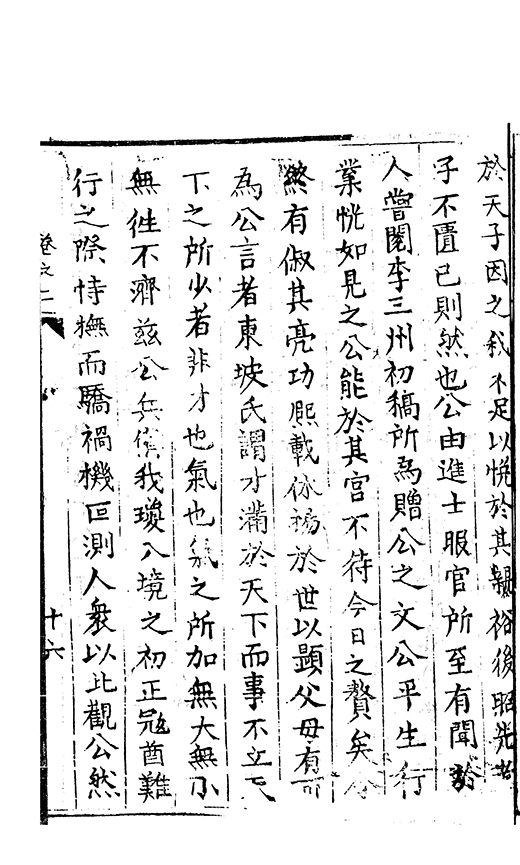 於天子因之我不足以悅於其親裕後昭先者
子不匱已則然也公由進士服官所至有聞於
人嘗閱李三州初稿所為贈公之文公平生行
業恍如見之公能於其官不待今日之贅矣
終有俶其亮功熙載休揚於世以顯父母有可
為公言者東坡氏謂才滿於天下而事不立天
下之所少者非才也氣也氣之所加無大無小
無往不濟茲公兵備我瓊入境之初正冦酋難
行之際恃撫而驕禍機叵測人衆以此觀公然
卷之二
十六